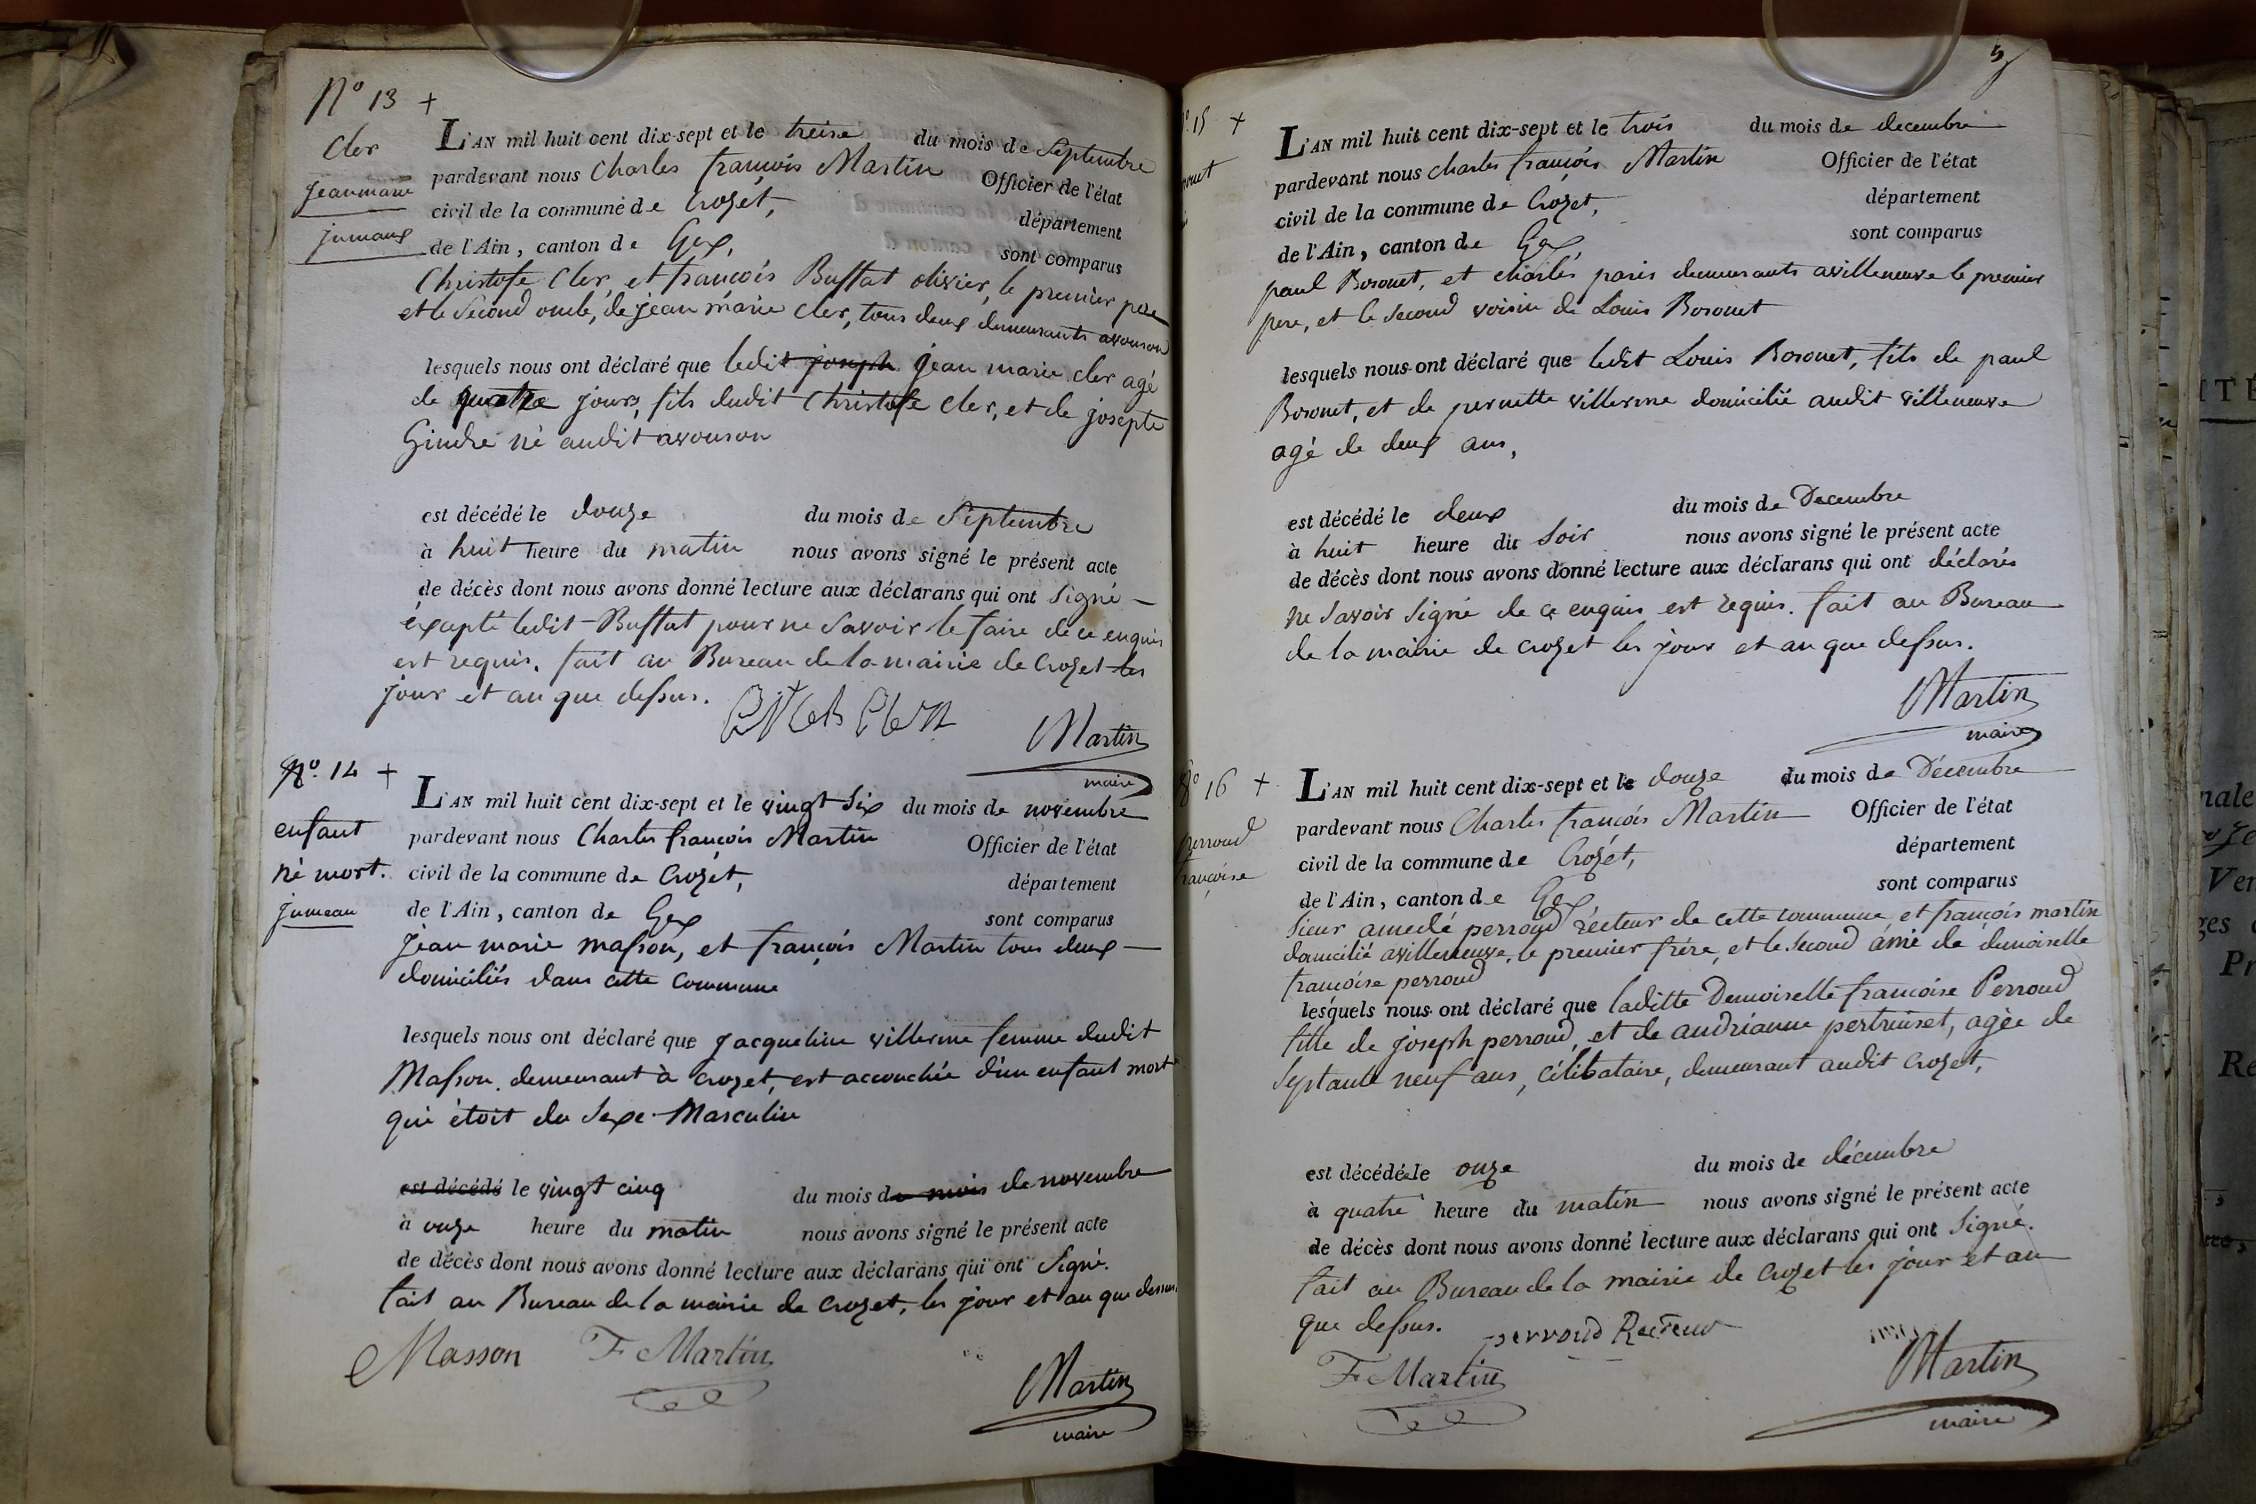 N° 13 +
Cler
jean marie
jumaux
L'AN mil huit cent dix-sept et le treise du mois de Septembre
pardevant nous Charles françois Martin Officier de l'état
civil de la commune de Crozét, département
de l'Ain, canton de Gex, sont comparus
Christofe Cler, et francois Buffat olivier, le premier pere
et le Second oncle, de jean marie Cler, tous deux demeurants avouson
lesquels nous ont déclaré que ledit joseph jean marie cler agé
de quatre jours, fils dudit Christofe Cler, et de josepte
Gindre né audit avouson
est décédé le douze du mois de Septembre
à huit heure du matin nous avons signé le présent acte
de décès dont nous avons donné lecture aux déclarans qui ont Signé
éxapté ledit Buffat pour ne Savoir le faire de ce enquis
est requis. fait au Bureau de la mairie de Crozet les
jour et an que dessus.
Martin
maire
N°. 14 +
enfant
né mort.
jumeau
L'AN mil huit cent dix-sept et le vingt six du mois de novembre
pardevant nous Charles françois Martin Officier de l'état
civil de la commune de Crozet, département
de l'Ain, canton de Gex sont comparus
jean marie masson, et françois Martin tous deux
domiciliés dans cette commune
lesquels nous ont déclaré que jacqueline villerme femme dudit
Masson, demeurant à crozet, est accouchée d'un enfant mort
qui étoit du Sexe Masculin
est décédé le vingt cinq du mois du mois de novembre
à onze heure du matin nous avons signé le présent acte
de décès dont nous avons donné lecture aux déclarans qui ont Signé.
fait au Bureau de la mairie de crozet, les jour et an que dessus.
Masson F Martin
Martin
maire
5
15 +
L'AN mil huit cent dix-sept et le trois du mois de decembre
pardevant nous charles françois Martin Officier de l'état
civil de la commune de Crozet, département
de l'Ain, canton de Gex sont comparus
paul Bosonet, et charles paris demeurants avilleneuve le premier
pere, et le second voisin de Louis Bosonet
lesquels nous ont déclaré que ledit Louis Bosonet, fils de paul
Bosonet, et de pernette villerme domicilié audit villeneuve
agé de deux ans,
est décédé le deux du mois de Decembre
à huit heure du Soir nous avons signé le présent acte
de décès dont nous avons donné lecture aux déclarans qui ont déclarés
ne Savoir Signé de ce enquis est requis. fait au Bureau
de la mairie de crozet les jour et an que dessus.
Martin
maire
16 +
perroud
françoise
L'AN mil huit cent dix-sept et le douze du mois de Décembre
pardevant nous Charles francois Martin Officier de l'état
civil de la commune de Crozét, département
de l'Ain, canton de Gex sont comparus
Sieur amedé perroud récteur de cette commune et françois martin
domicilié avilleneuve, le premier frére, et le Second ámi de demoiselle
francoise perroud
lesquels nous ont déclaré que laditte Demoiselle francoise Perroud
fille de joseph perroud, et de andrianne pertuiset, agée de
Septante neuf ans, célibataire, demeurant audit crozet,
est décédée le onze du mois de décembre
à quatre heure du matin nous avons signé le présent acte
de décès dont nous avons donné lecture aux déclarans qui ont Signé.
fait au Bureau de la mairie de crozet les jour et an
que dessus. perroud Recteur
F Martin
Martin
maire